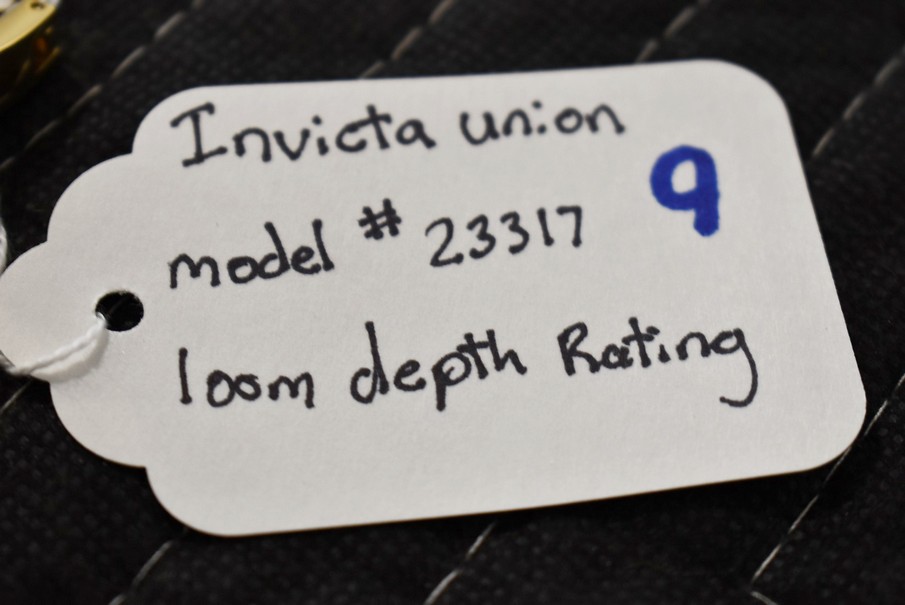 Invicta union
9
model # 23317
100m depth Rating